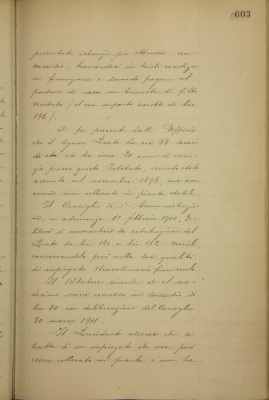 603
presentato istanza per ottenere un
sussidio, trovandosi in tristi condizio
ni finanziarie e dovendo pagare al
padrone di casa un trimestre di fitto
scaduto (il cui importo sarebbe di lire
186).
Si fa presente dall'Ufficio
che il signor ha già 38 anni
di età ed ha circa 20 anni di servi
zio presso questo Istituto, essendo stato
assunto nel novembre 1893, ma non
essendo mai collocato in pianta stabile.
Il Consiglio di Amministrazio
ne, in adunanza 1° febbraio 1900, de
liberò di aumentare la retribuzione del
da lire 120 a lire 132 mensili,
conservandola però nella sua qualità
di impiegato straordinario fuori ruolo.
Il Relatore ricorda che al me
desimo venne concesso un sussidio di
lire 80 con deliberazione del Consiglio
30 marzo 1911.
Il Presidente osserva che si
tratta di un impiegato che non può
essere collocato in pianta e non ha